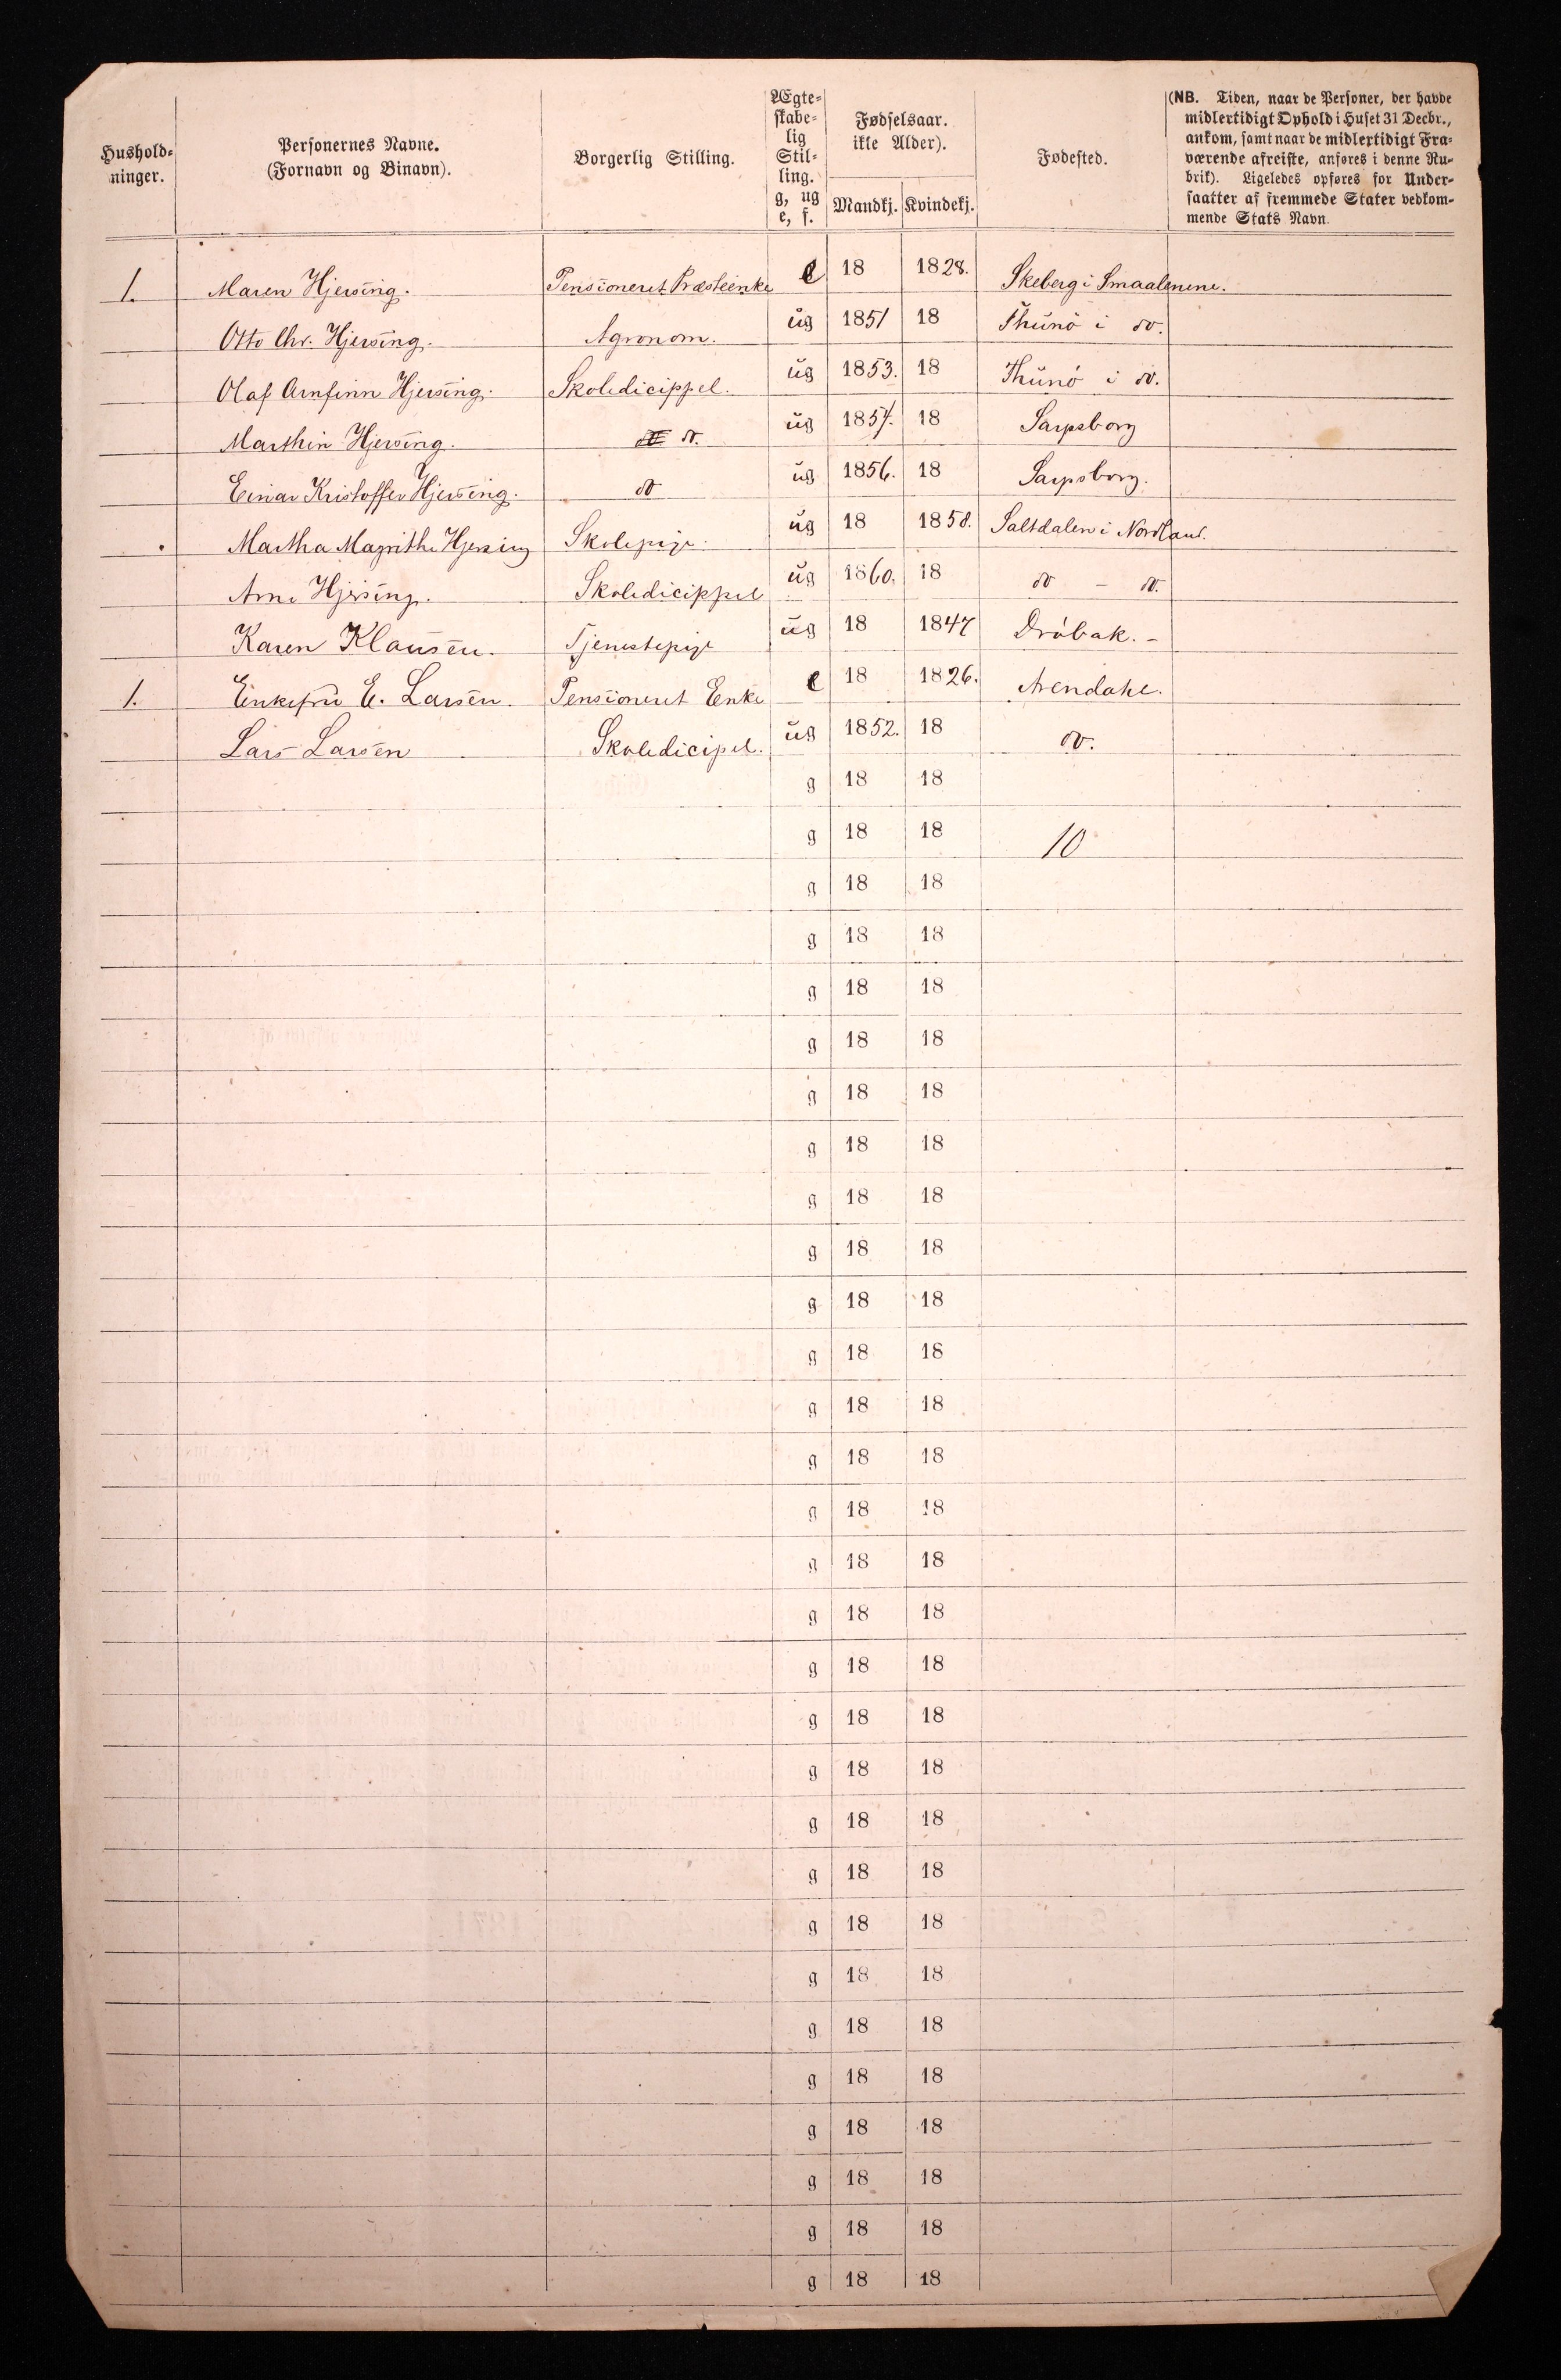 Hushold-
ninger.
Personernes Navne.
(Fornavn og Binavn).
Borgerlig Stilling.
Ægte-
skabe-
lig
Stil-
ling.
g, ug
e, f.
Fødselsaar.
ikke Alder).
Mandkj. Kvindekj.
Fødested.
(NB. Tiden, naar de Personer, der havde
midlertidigt Ophold i Huset 31 Decbr.,
ankom, samt naar de midlertidigt Fra-
værende afreiste, anføres i denne Ru-
brik). Ligeledes opføres for Under-
saatter af fremmede Stater vedkom-
mende Stats Navn.
1. Maren Hjersing. Pensioneret Præsteenke e 18 1828. Skeberg i Smaalenene.
Otto Chr. Hjersing. Agronom. ug 1851 18 Thunö i do.
Olaf Arnfinn Hjersing. Skoledicippel. ug 1853. 18 Thunö i do.
Marthin Hjersing. do. ug 1854. 18 Sarpsborg
Einar Kristoffer Hjersing. do ug 1856. 18 Sarpsborg.
Martha Magrithe Hjersing Skolepige. ug 18 1858. Saltdalen i Nordland.
Arne Hjersing. Skoledicippel ug 1860. 18 do - do.
Karen Klausen. Tjenestepige ug 18 1847 Dröbak. -
1. Enkefru E. Larsen. Pensioneret Enke e 18 1826. Arendahl.
Lars Larsen Skoledicipel. ug 1852. 18 do.
g 18 18
g 18 18 10
g 18 18
g 18 18
g 18 18
g 18 18
g 18 18
g 18 18
g 18 18
g 18 18
g 18 18
g 18 18
g 18 18
g 18 18
g 18 18
g 18 18
g 18 18
g 18 18
g 18 18
g 18 18
g 18 18
g 18 18
g 18 18
g 18 18
g 18 18
g 18 18
g 18 18
g 18 18
g 18 18
g 18 18